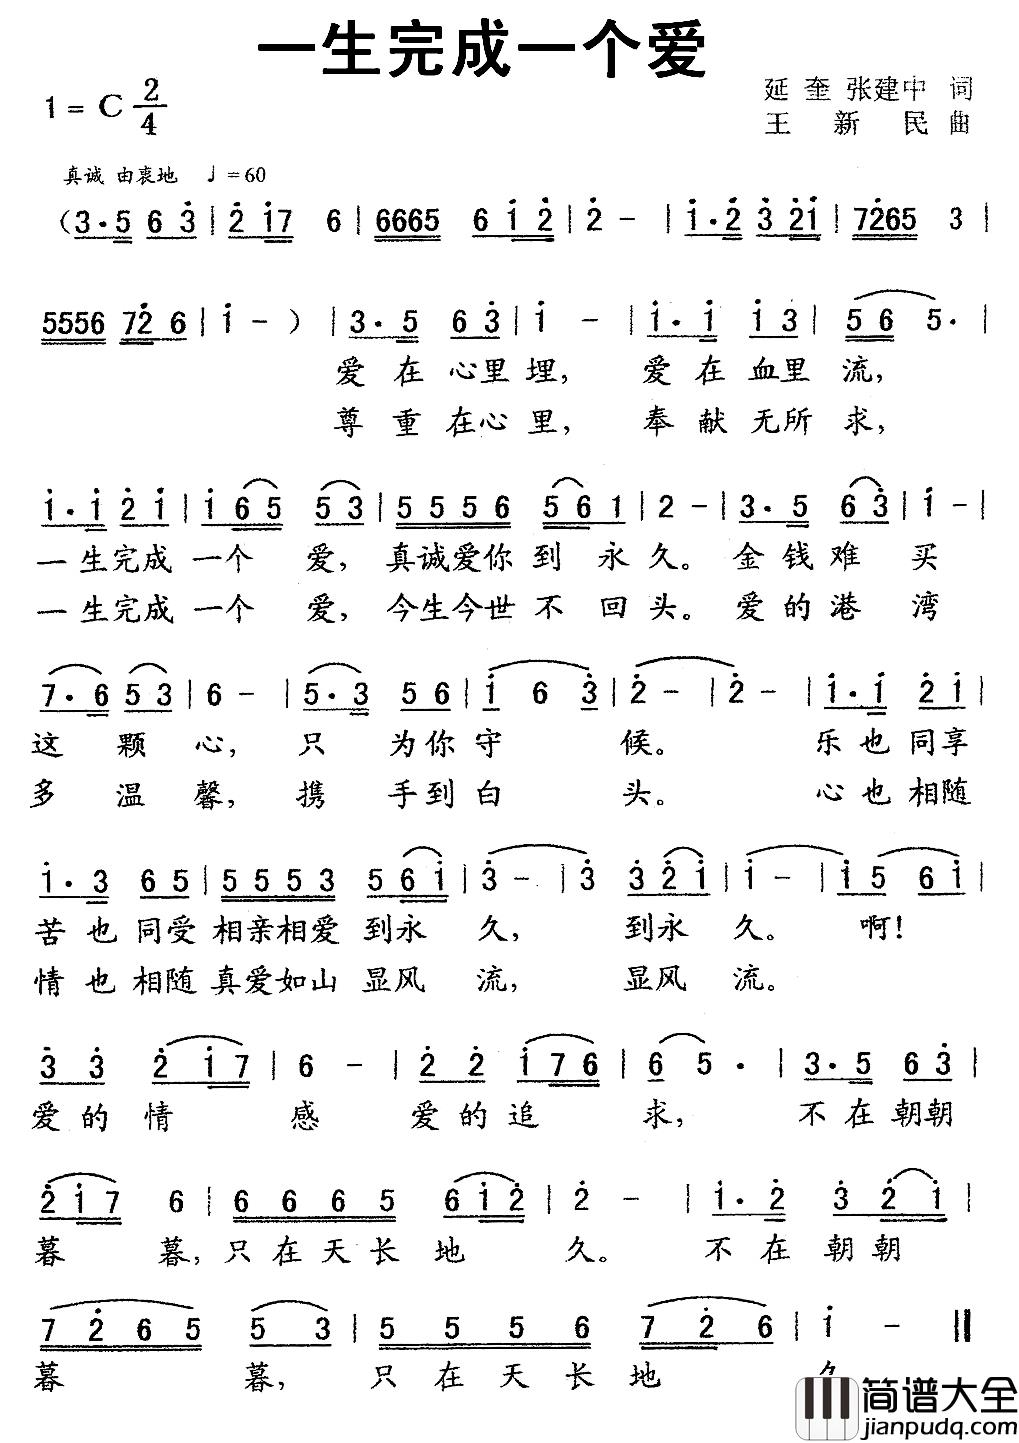 一生完成一个爱
1 = C 2/4
延 奎 张建中 词
王 新 民 曲
真诚 由衷地 ♩ = 60
(3·5 6 3̇ | 2̇ 1̇7 6 | 6665 6 1̇ 2̇ | 2̇ - | 1̇·2̇ 3̇ 2̇1̇ | 72̇65 3 |
5556 72̇ 6 | 1̇ - ) | 3·5 6 3̇ | 1̇ - | 1̇·1̇ 1̇ 3̇ | 5 6 5· |
爱 在 心里 埋， 爱 在 血里 流，
尊 重 在心 里， 奉 献 无所 求，
1̇·1̇ 2̇ 1̇ | 1̇ 6 5 5 3 | 5 5 5 6 5 6 1 | 2 - | 3·5 6 3̇ | 1̇ - |
一 生完成 一个 爱， 真诚爱你 到 永 久。 金 钱 难 买
一 生完成 一个 爱， 今生今世 不 回 头。 爱 的 港 湾
7·6 5 3 | 6 - | 5·3 5 6 | 1̇ 6 3̇ | 2̇ - | 2̇ - | 1̇·1̇ 2̇ 1̇ |
这 颗 心， 只 为你 守 候。 乐 也 同享
多 温 馨， 携 手到 白 头。 心 也 相随
1̇·3 6 5 | 5 5 5 3 5 6 1̇ | 3̇ - | 3̇ 3̇ 2̇ 1̇ | 1̇ - | 1̇ 5 6 1̇ |
苦 也 同受 相亲相爱 到永 久， 到永 久。 啊！
情 也 相随 真爱如山 显风 流， 显风 流。
3̇ 3̇ 2̇ 1̇ 7 | 6 - | 2̇ 2̇ 1̇ 7 6 | 6 5 · | 3·5 6 3̇ |
爱 的 情 感 爱 的 追 求， 不 在 朝朝
2̇ 1̇ 7 6 | 6 6 6 5 6 1̇ 2̇ | 2̇ - | 1̇·2̇ 3̇ 2̇ 1̇ |
暮 暮，只 在 天 长 地 久。 不 在 朝 朝
7 2̇ 6 5 5 3 | 5 5 5 6 7 2̇ 6 | 1̇ - ‖
暮 暮， 只 在 天 长 地
简谱大全
jianpudq.com